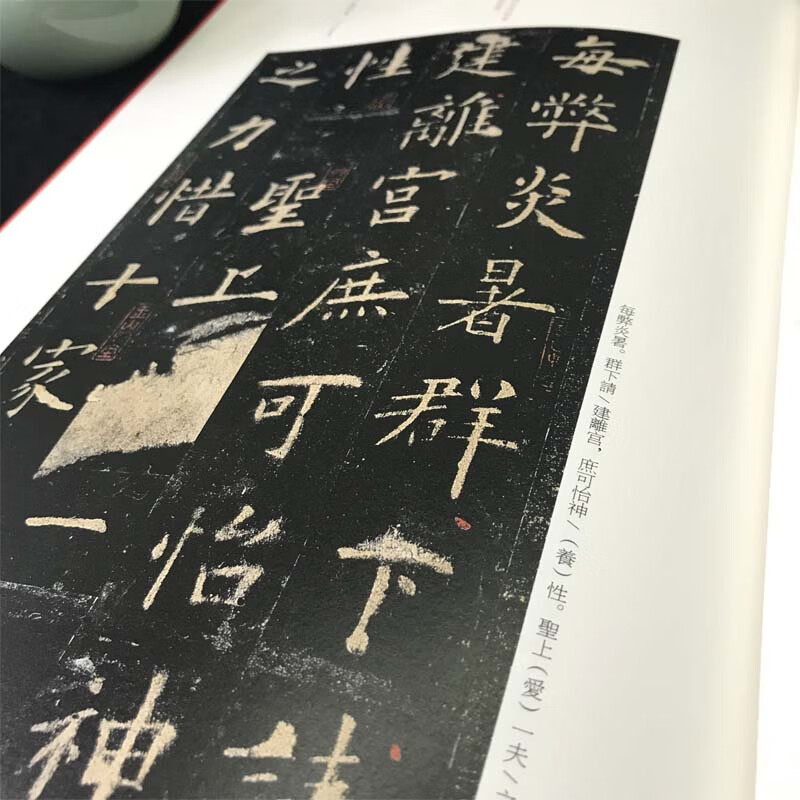 每弊炎暑群下請
建離宮庶可怡神
性聖上一
之力惜十家
每弊炎暑。群下請/建離宫，庶可怡神/（養）性。聖上（愛）一夫/